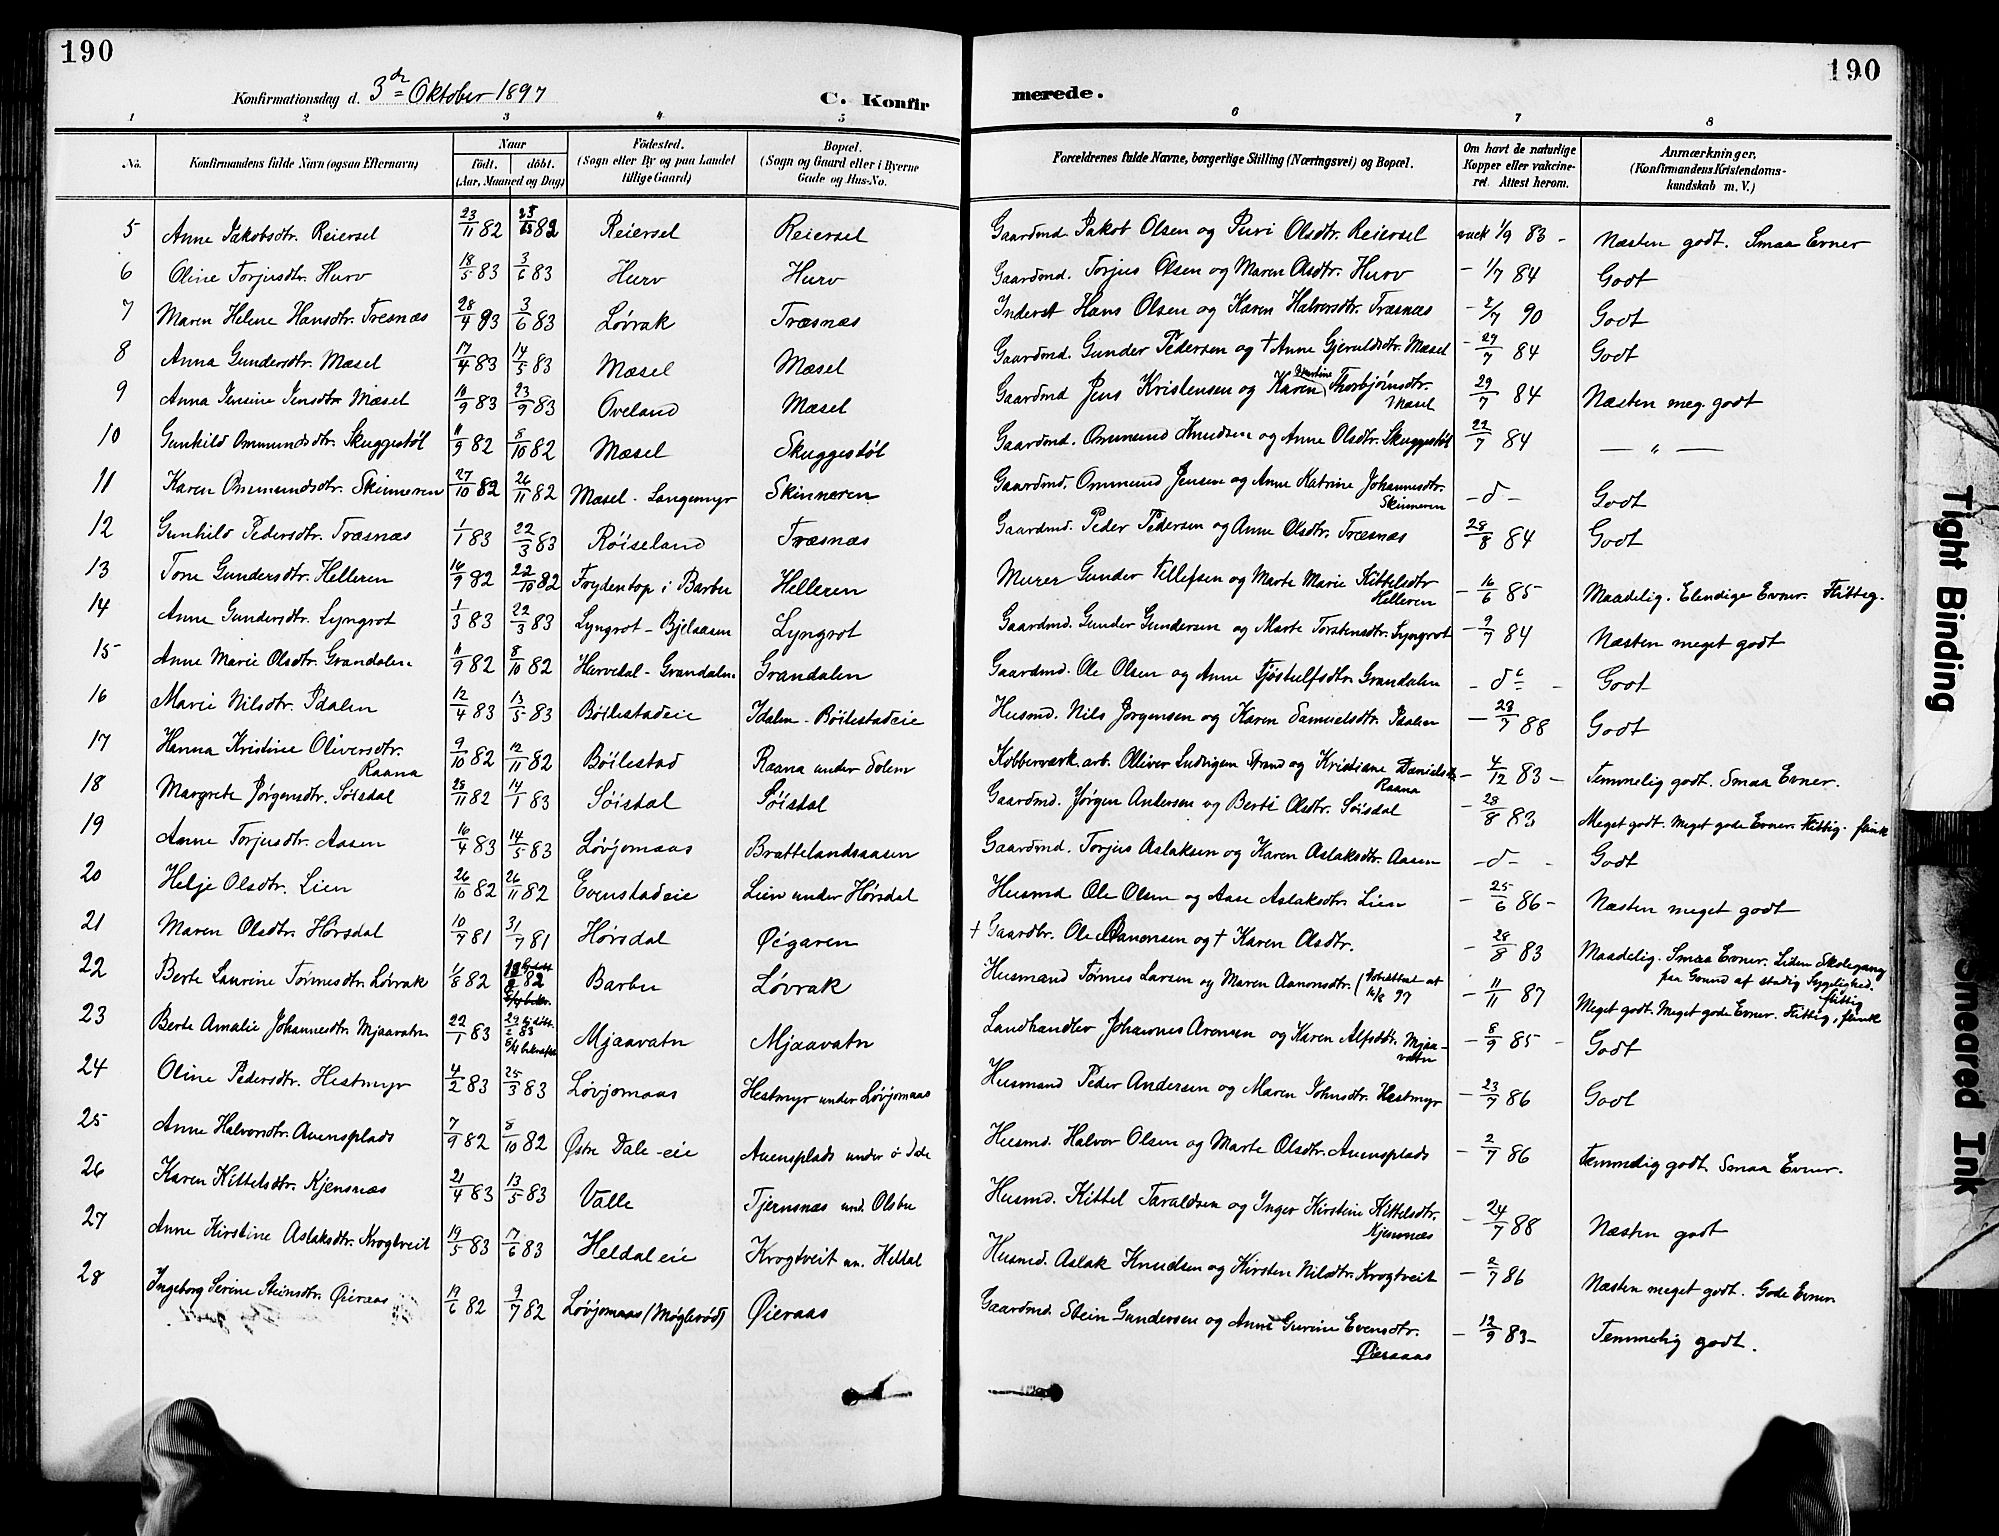 190
190
Konfirmationsdag d. 3de Oktober 1897
C. Konfir
merede.
1 2 3 4 5 6 7 8
No.
Konfirmandens fulde Navn (ogsaa Efternavn)
Naar
født. døbt.
(Aar, Maaned og Dag)
Fødested.
(Sogn eller By og paa Landet
tillige Gaard)
Bopæl.
(Sogn og Gaard eller i Byerne
Gade og Hus-No.
Forældrenes fulde Navne, borgerlige Stilling (Næringsvei) og Bopæl.
Om havt de naturlige
Kopper eller vakcine-
ret. Attest herom.
Anmærkninger.
(Konfirmandens Kristendoms-
kundskab m. V.)
5 Anne Jakobsdtr. Reiersel 23/11 82 Reiersel Reiersel Gaardmd. Jakob Olsen og Guri Olsdtr. Reiersel vack 1/9 83 - Næsten godt. Smaa Evner
6 Oline Torjusdtr. Hurv 18/5 83 3/6 83 Hurv Hurv Gaardmd. Torjus Olsen og Maren Olsdtr. Hurv - 1/7 84 Godt
7 Maren Helene Hansdtr. Træsnæs 28/4 83 3/6 83 Løvrak Træsnæs Inderst Hans Olsen og Karen Halvorsdtr. Træsnæs - 2/7 90 Godt
8 Anna Gundersdtr. Mæsel 17/4 83 14/5 83 Mæsel Mæsel Gaardmd. Gunder Pedersen og † Anne Gjeruldsdtr. Mæsel - 29/7 84 Godt
9 Anna Jensine Jensdtr. Mæsel 10/9 83 23/9 83 Oveland Mæsel Gaardmd Jens Kristensen og Karen Martine Thorbjørnsdtr. Mæsel 29/7 84 Næsten meg. godt
10 Gunhild Ommundsdtr. Skuggestøl 11/9 82 8/10 82 Mæsel Skuggestøl Gaardmd. Ommund Knudsen og Anne Olsdtr. Skuggestøl 22/7 84 — " —
11 Karen Ommundsdtr. Skinneren 27/10 82 26/11 82 Mæsel - Langemyr Skinneren Gaardmd. Ommund Jensen og Anne Katrine Johannesdtr. Skinneren - d - Godt
12 Gunhild Pedersdtr. Træsnæs 1/1 83 22/3 83 Røiseland Træsnæs Gaardmd. Peder Pedersen og Anne Olsdtr. Træsnæs 28/8 84 Godt
13 Tone Gundersdtr. Helleren 16/9 82 22/10 82 Frydentop i Barbu Helleren Murer Gunder Tellefsen og Marte Marie Kittelsdtr Helleren - 16/6 85 Maadelig. Elendige Evner. Flittig.
14 Anne Gundersdtr. Lyngrot 1/3 83 22/3 83 Lyngrot - Bjelaasen Lyngrot Gaardmd. Gunder Gundersen og Marte Torstensdtr. Lyngrot - 9/7 84 Næsten meget godt
15 Anne Marie Olsdtr. Grandalen 11/9 82 8/10 82 Hurvedal - Grandalen Grandalen Gaardmd. Ole Olsen og Anne Tjøstulfsdtr. Grandalen - do - Godt
16 Marie Nilsdtr. Idalen 12/4 83 13/5 83 Bøilestadeie Idalen - Bøilestadeie Husmd. Nils Jørgensen og Karen Samuelsdtr. Idalen - 23/7 88 Godt
17 Hanna Kristine Oliversdtr. Raana 9/10 82 12/11 82 Bøilestad Raana under Solem Kobberværk.arb. Olliver Ludvigsen Strand og Kristiane Danielsd. Raana - 4/12 83 - Temmelig godt. Smaa Evner.
18 Margrete Jørgensdtr. Søisdal 25/11 82 14/1 83 Søisdal Søisdal Gaardmd. Jørgen Andersen og Berte Olsdtr. Søisdal - 28/8 83 Meget godt. Meget gode Evner. Flittig. flink
19 Anne Torjusdtr. Aasen 16/4 83 14/5 83 Løvjomaas Brattelandsaasen Gaardmd. Torjus Aslaksen og Karen Aslaksdtr. Aasen - d - Godt
20 Helje Olsdtr. Lien 26/10 82 26/11 82 Evenstadeie Lien under Hørsdal Husmd Ole Olsen og Aase Aslaksdtr. Lien - 25/6 86 - Næsten meget godt
21 Maren Olsdtr. Hørsdal 10/7 81 31/7 81 Hørsdal Øigaren † Gaardbr. Ole Aanonsen og † Karen Olsdtr. - 28/8 83 Maadelig. Smaa Evner. Liden Skolegang paa Grund af stadig Sygelighed. flittig
22 Berte Laurine Tørnesdtr. Løvrak 1/8 82 Barbu Løvrak Husmand Tørnes Larsen og Maren Aanonsdtr. - 11/11 87 Meget godt. Meget gode Evner. Flittig, flink
23 Berte Amalie Johannesdtr. Mjaavatn 22/1 83 Mjaavatn Mjaavatn Landhandler Johannes Aronsen og Karen Alfsdtr. Mjaavatn - 8/9 85 - Godt
24 Oline Pedersdtr. Hestmyr 4/2 83 25/3 83 Løvjomaas Hestmyr under Løvjomaas Husmand Peder Andersen og Maren Johnsdtr. Hestmyr - 23/7 86 Godt
25 Anne Halvorsdtr. Auensplads 7/9 82 8/10 82 Østre Dale-eie Auensplads under ø. Dale Husmd. Halvor Olsen og Marte Olsdtr. Auensplads - 2/7 86 Temmelig godt. Smaa Evner.
26 Karen Kittelsdtr. Kjensnæs 21/4 83 13/5 83 Valle Tjernsnæs und. Olsbu Husmd. Kittel Taraldsen og Inger Kirstine Kittelsdtr. Kjensnæs - 24/7 88 Næsten godt
27 Anne Kirstine Aslaksdtr. Krogtveit 19/5 83 17/6 83 Heldal eie Krogtveit un. Heldal Husmd. Aslak Knudsen og Kirsten Nilsdtr. Krogtveit - 2/7 86 Næsten meget godt. Gode Evner
28 Ingeborg Serine Steinsdtr. Øieraas 19/6 82 9/7 82 Løvjomaas (Møglerød) Øieraas Gaardmd. Stein Gundersen og Anne Gurine Evensdtr. Øieraas - 12/9 83 - Temmelig godt.
Tight Binding
Smeared Ink